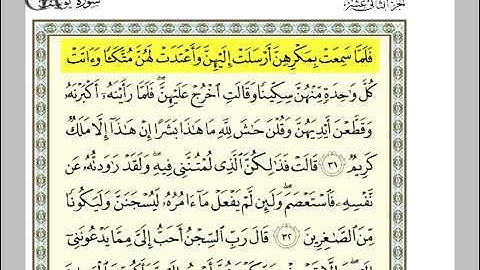 الجزء الثاني عشر
سورة يوسف
فَلَمَّا سَمِعَتْ بِمَكْرِهِنَّ أَرْسَلَتْ إِلَيْهِنَّ وَأَعْتَدَتْ لَهُنَّ مُتَّكَـًٔا وَءَاتَتْ
كُلَّ وَٰحِدَةٍ مِّنْهُنَّ سِكِّينًا وَقَالَتِ ٱخْرُجْ عَلَيْهِنَّ ۖ فَلَمَّا رَأَيْنَهُۥٓ أَكْبَرْنَهُۥ
وَقَطَّعْنَ أَيْدِيَهُنَّ وَقُلْنَ حَٰشَ لِلَّهِ مَا هَٰذَا بَشَرًا إِنْ هَٰذَآ إِلَّا مَلَكٌ
كَرِيمٌ ٣١ قَالَتْ فَذَٰلِكُنَّ ٱلَّذِى لُمْتُنَّنِى فِيهِ ۖ وَلَقَدْ رَٰوَدتُّهُۥ عَن
نَّفْسِهِۦ فَٱسْتَعْصَمَ ۖ وَلَئِن لَّمْ يَفْعَلْ مَآ ءَامُرُهُۥ لَيُسْجَنَنَّ وَلَيَكُونًا
مِّنَ ٱلصَّٰغِرِينَ ٣٢ قَالَ رَبِّ ٱلسِّجْنُ أَحَبُّ إِلَىَّ مِمَّا يَدْعُونَنِىٓ